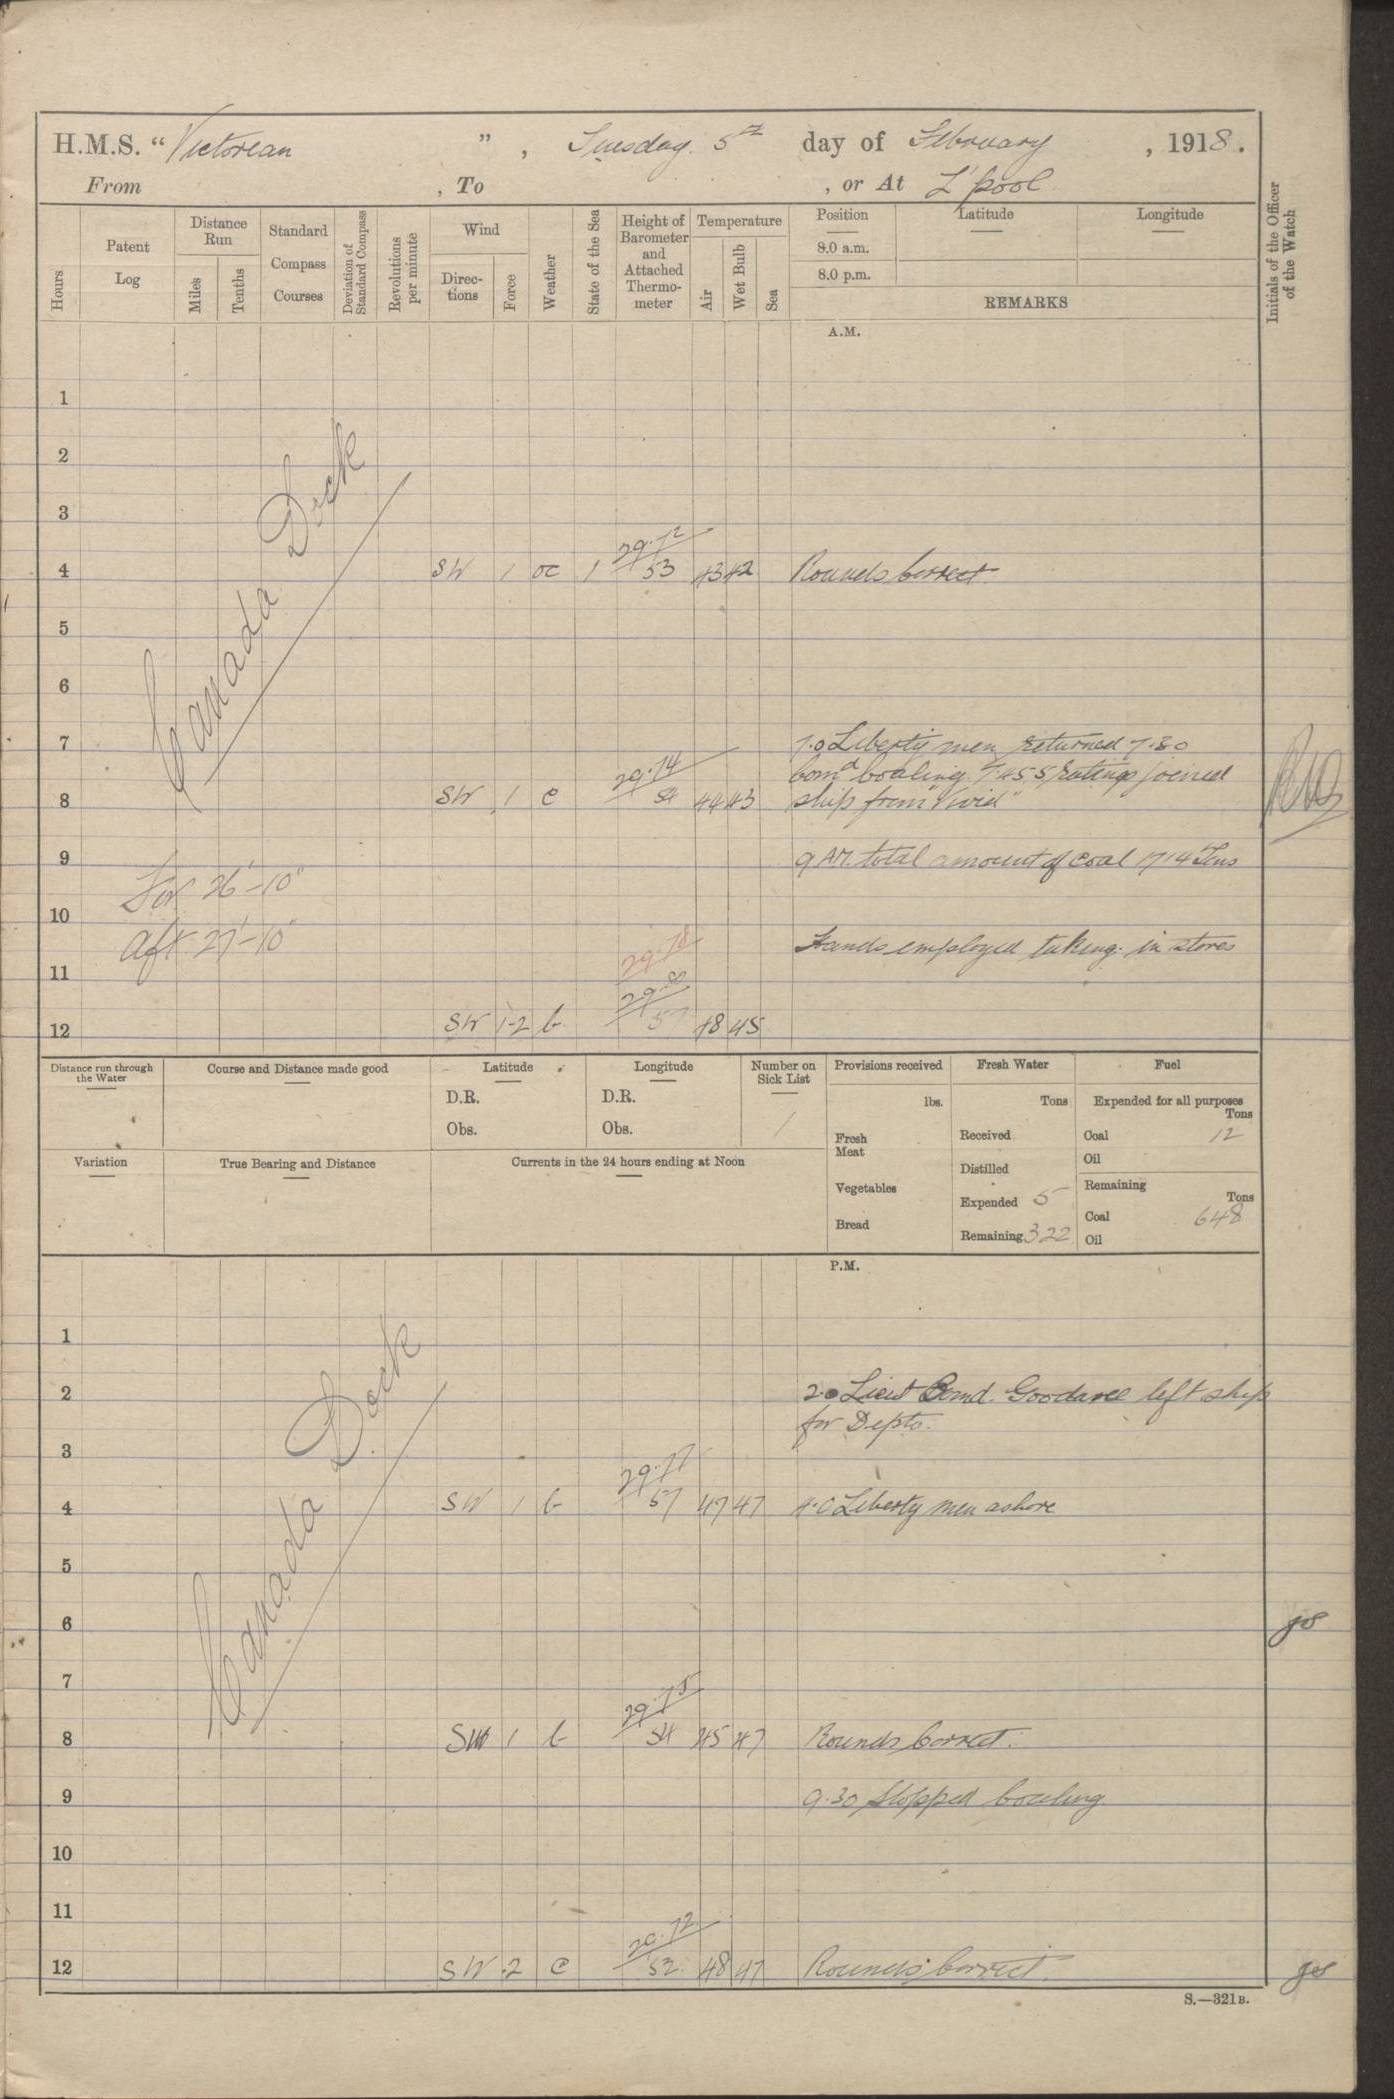 H.M.S. "Victorian", Tuesday 5th day of February, 1918.
From , To , or At L'pool
Hours
Patent Log
Distance Run
Miles
Tenths
Standard Compass Courses
Deviation of Standard Compass
Revolutions per minute
Wind
Directions
Force
Weather
State of the Sea
Height of Barometer and Attached Thermometer
Temperature
Air
Wet Bulb
Sea
Position
8.0 a.m.
8.0 p.m.
Latitude
Longitude
REMARKS
Initials of the Officer of the Watch
A.M.
Canada Dock
1
2
3
4 SW 1 oc 1 29.72 53 43 42 Rounds Correct
5
6
7 7.0 Liberty men returned 7.30
comd coaling. 7.45 5 ratings joined
8 SW 1 c 29.74 54 44 43 ship from "Vivid"
9 9 AM. total amount of coal 1714 Tons
For 26'-10"
10
Aft 27'-10" Hands employed taking in stores
11 29.78
29.8
12 SW 1-2 b 57 48 45
Distance run through the Water
Course and Distance made good
Latitude
D.R.
Obs.
Longitude
D.R.
Obs.
Number on Sick List
1
Variation
True Bearing and Distance
Currents in the 24 hours ending at Noon
Provisions received
lbs.
Fresh Meat
Vegetables
Bread
Fresh Water
Tons
Received
Distilled
Expended 5
Remaining 322
Fuel
Expended for all purposes
Tons
Coal 12
Oil
Remaining
Tons
Coal 648
Oil
P.M.
Canada Dock
1
2 2.0 Lieut Comd. left ship
for Depto.
3
4 SW 1 b 29.77 57 47 47 4.0 Liberty men ashore
5
6
7
8 SW 1 b 29.75 54 45 47 Rounds Correct.
9 9.30 Stopped Coaling
10
11
12 SW 2 c 29.72 52 48 47 Rounds Correct
S.—321B.